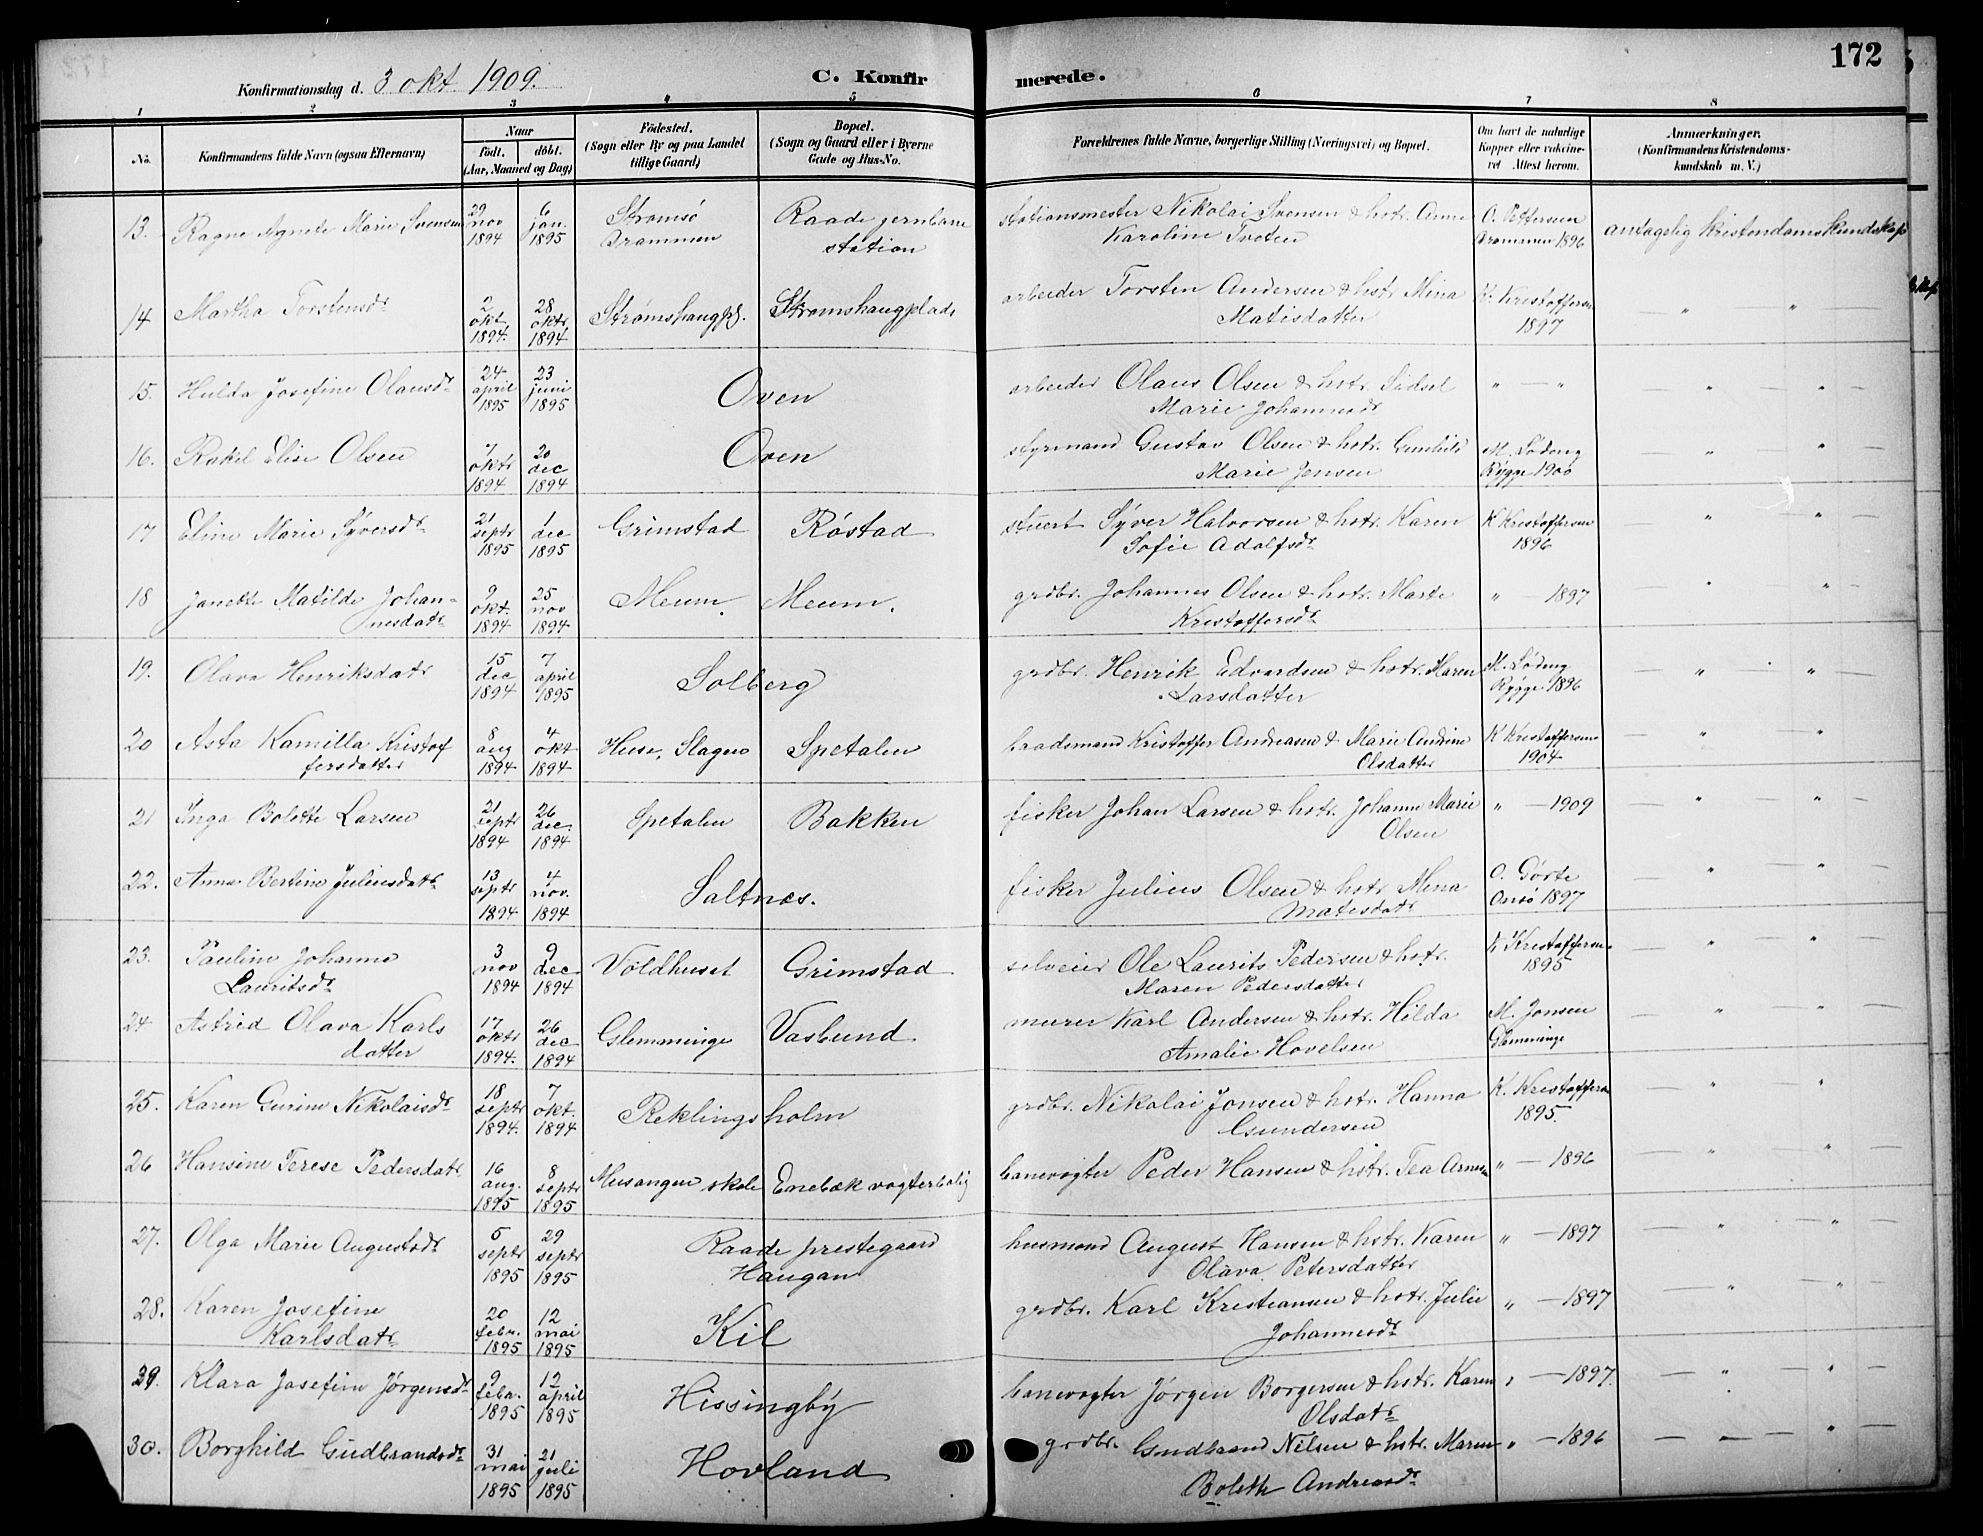 172
Konfirmationsdag d. 3 okt. 1909. C. Konfirmerede.
1 2 3 4 5 6 7 8
No. Konfirmandens fulde Navn (ogsaa Efternavn) Naar födt. döbt. (Aar, Maaned og Dag) Födested. (Sogn eller By og paa Landet tillige Gaard) Bopæl. (Sogn og Gaard eller i Byerne Gade og Hus-No. Forældrenes fulde Navne, borgerlige Stilling (Næringsvei) og Bopæl. Om havt de naturlige Kopper eller vaccineret Attest herom. Anmærkninger. (Konfirmandens Kristendomskundskab m. V.)
13. Ragne Agnete Marie Svensen 29 nov 1894 6 jan. 1895 Strømsø Drammen Raade jernbane station stationsmester Nikolai Svensen & hstr. Anne Karoline Tvoten O. Pettersen Drammen 1896 antagelig kristendomskundskap
14 Martha Torstensdr 2 okt 1894. 28 oktr 1894 Strømshaugpl. Strømshaugplads arbeider Torsten Andersen & hstr Mina Matisdatter K. Kristoffersen 1897 — " " —
15. Hulda Josefine Olausdr 24 april 1895 23 juni 1895 Oven arbeider Olaus Olsen & hstr. Sidsel Marie Johannesdr " — " — " — " —
16. Rakel Elise Olsen 7 oktr 1894 20 dec 1894 Oven styrmand Gustav Olsen & hstr. Gunhild Marie Jensen M. Lødeng Rygge 1900 — " — " —
17 Eline Marie Syversdr 21 septr 1895 1 dec 1895 Grimstad Røstad stuert Syver Halvorsen & hstr. Karen Sofie Adolfsdr K Kristoffersen 1896 — " — " —
18 Janette Matilde Johannesdatr 9 okt. 1894 25 nov 1894 Meum. Meum. grdbr. Johannes Olsen & hstr. Marte Kristoffersdr " — 1897 — " — "
19. Olava Henriksdatr 15 dec 1894 7 april 1895 Solberg grdbr. Henrik Edvardsen & hstr. Maren Larsdatter M. Lødeng Rygge 1896 — " — " —
20 Asta Kamilla Kristoffersdatter 8 aug 1894 4 okt 1894 Huse, Slagen Spetalen baadsmand Kristoffer Andreasen & Marie Andrine Olsdatter K Kristoffersen 1904 — " — "
21 Inga Bolette Larsen 21 septr 1894 26 dec. 1894 Spetalen Bakken fisker Johan Larsen & hstr. Johanne Marie Olsen " — 1909 — " — " —
22. Anna Bertine Juliusdatr 13 septr 1894 4 nov. 1894 Saltnes. fisker Julius Olsen & hstr. Mina Matisdatr O. Gørte Onsø 1897 — " — " —
23. Pauline Johanne Lauritsdr 3 nov 1894 9 dec 1894 Voldhuset Grimstad selveier Ole Laurits Pedersen & hstr. Maren Pedersdatter K Kristoffersen 1895 — " — " —
24 Astrid Olava Karlsdatter 17 oktr 1894. 26 dec 1894 Glemminge Vasbund murer Karl Andersen & hstr. Hilda Amalie Hovelsen M. Jonsen Glemminge — " — " —
25. Karen Gurine Nikolaisdr 18 septr 1894. 7 okt. 1894 Reklingsholm grdbr. Nikolai Jonsen & hstr. Hanna Gundersen K. Kristoffersen 1895. — " — "
26 Hansine Terese Pedersdatr 16 aug. 1895 8 septr 1895 Musangen skole Enebæk vogterbolig banevogter Peder Hansen & hstr. Tea Arnesen " — 1896 — " — " —
27. Olga Marie Augustsdr 5 septr 1895 29 septr 1895 Raade prestegaard Haugan husmand August Hansen & hstr. Karen Olava Petersdatter " — 1897 — " — " —
28. Karen Josefine Karlsdatr 20 febr. 1895 12 mai 1895 Kil grdbr. Karl Kristiansen & hstr. Julie Johannesdr " — 1897 — " — " —
29. Klara Josefine Jørgensdr 9 febr. 1895 12 april 1895 Hissingby banevogter Jørgen Borgersen & hstr. Karen Olsdatr " — 1897. — " — " —
30. Borghild Gudbrandsdr 31 mai 1895 21 juli 1895 Hovland grdbr. Gudbrand Nilsen & hstr. Maren Boleth Andreasdr " — 1896 — " — " —